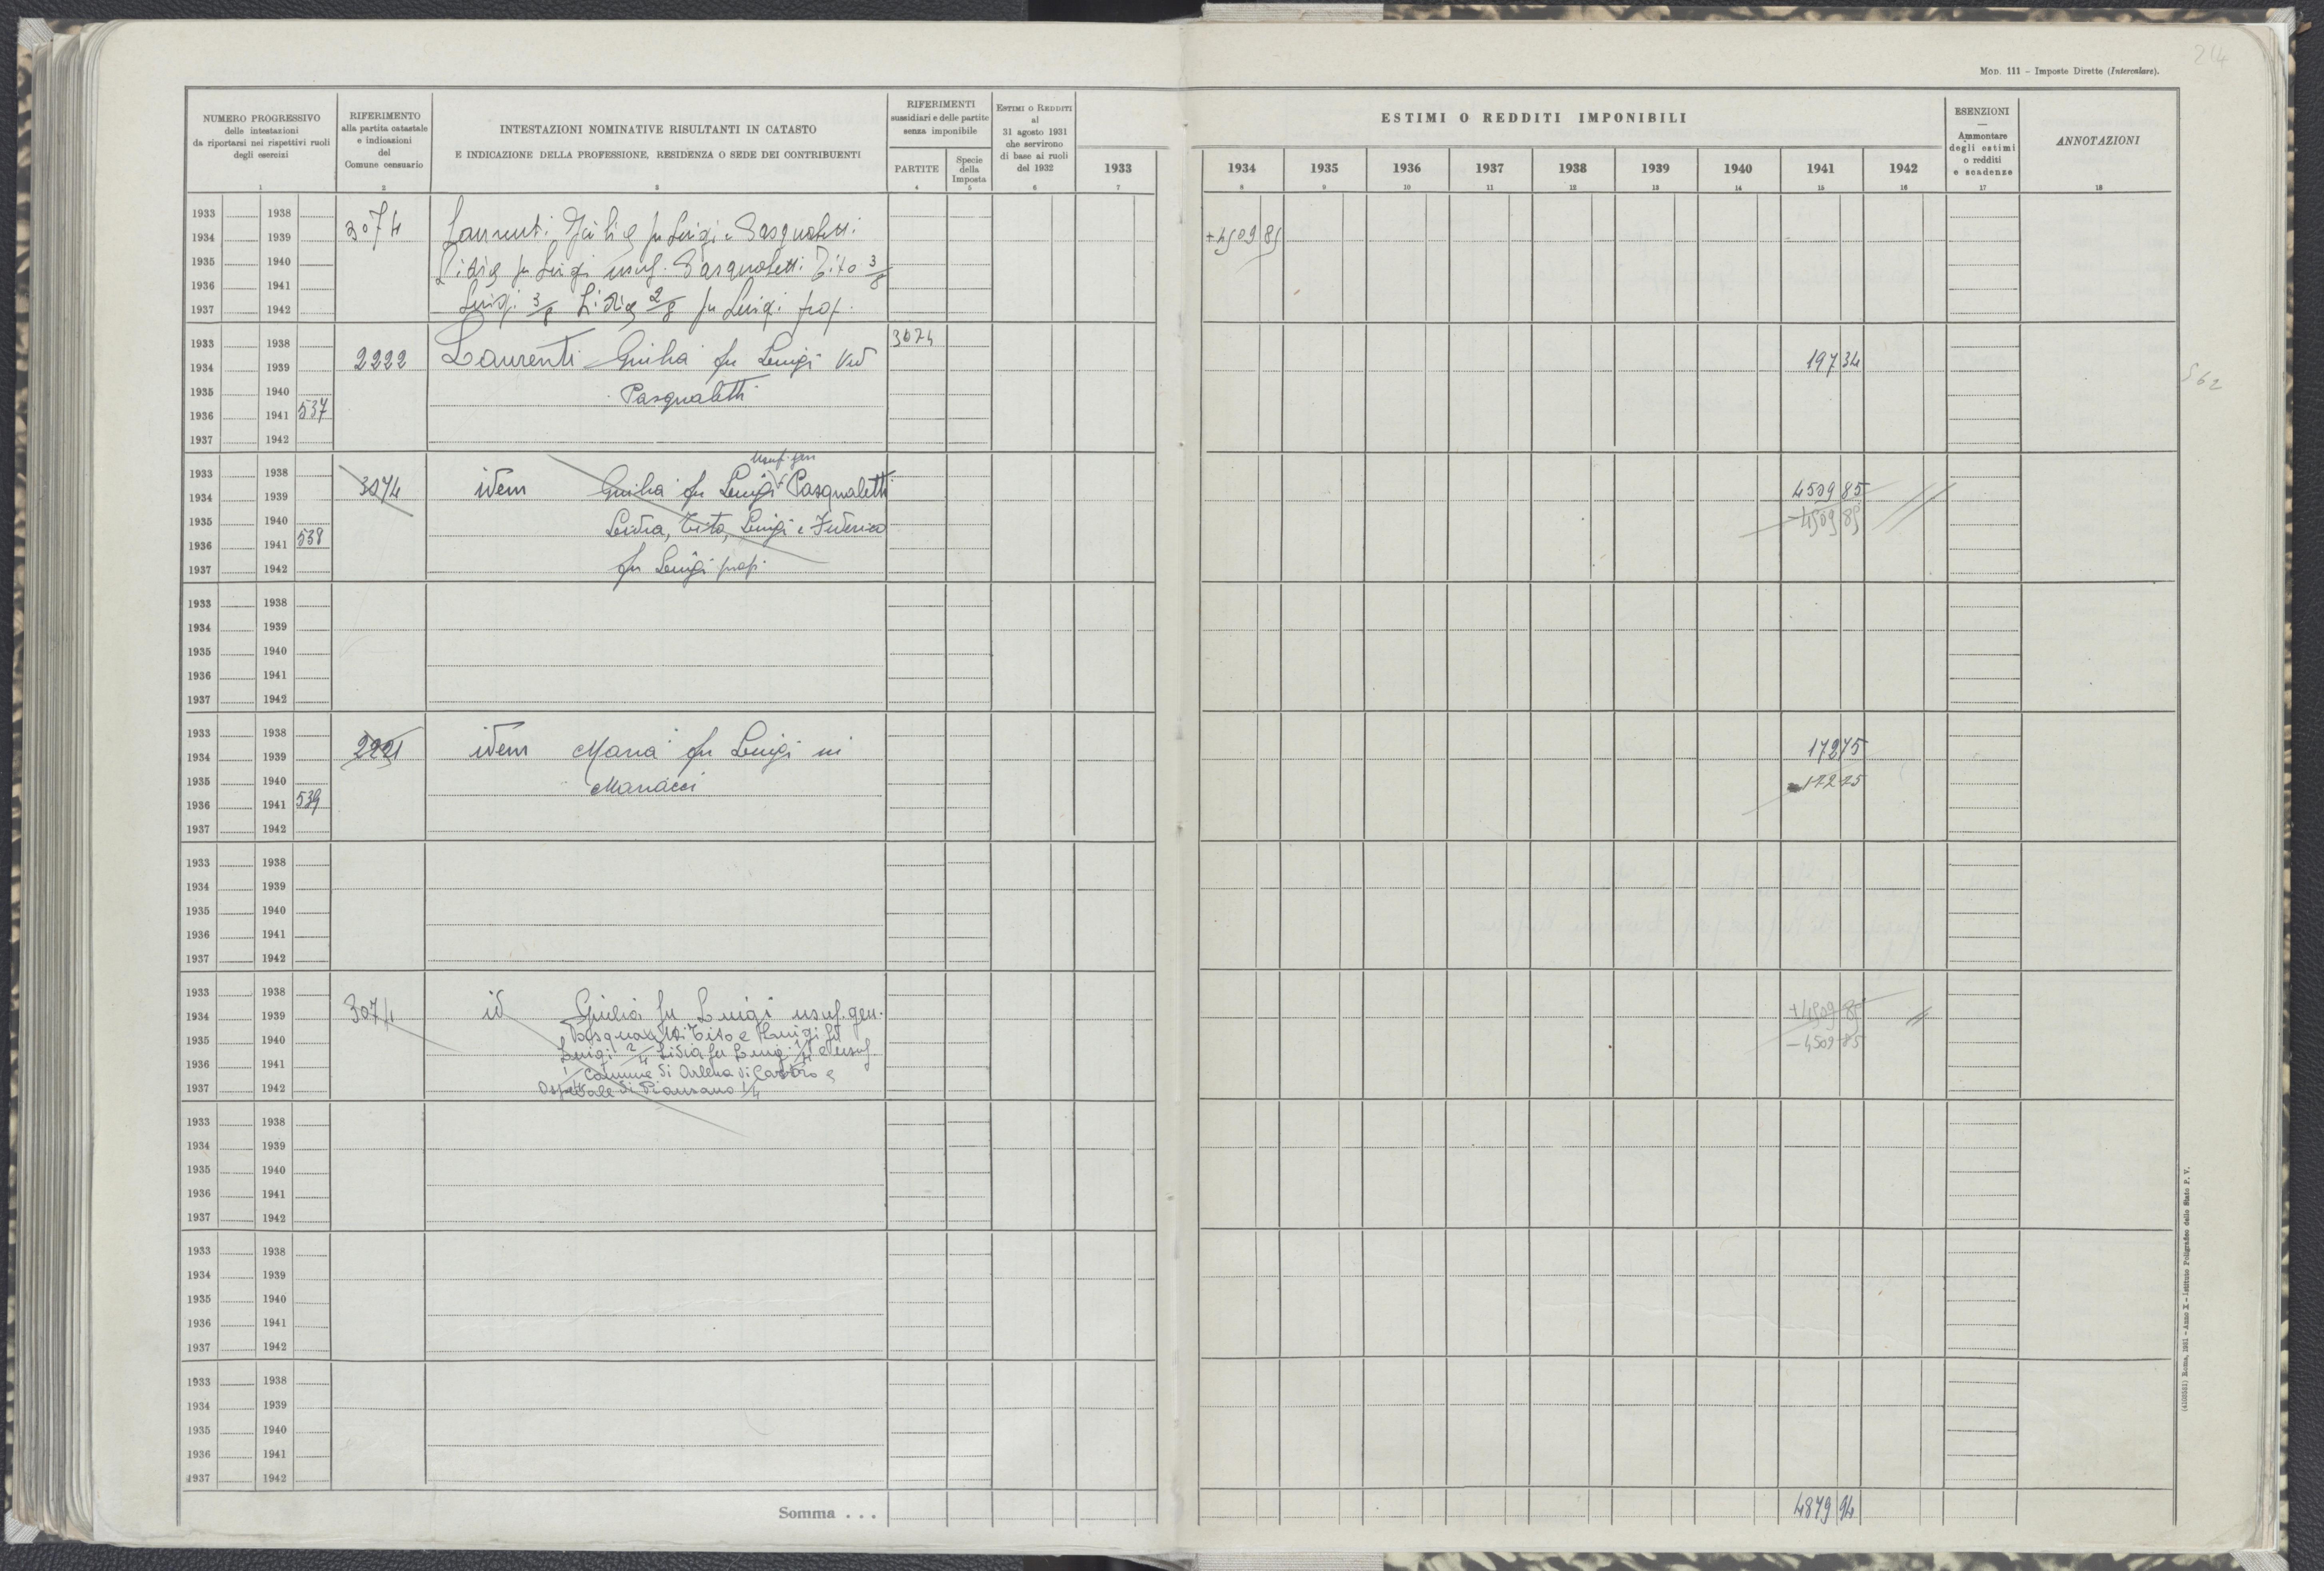 214
MOD. 111 – Imposte Dirette (Intercalare).
NUMERO PROGRESSIVO
delle intestazioni
da riportarsi nei rispettivi ruoli
degli esercizi
1
RIFERIMENTO
alla partita catastale
e indicazioni
del
Comune censuario
2
INTESTAZIONI NOMINATIVE RISULTANTI IN CATASTO
E INDICAZIONE DELLA PROFESSIONE, RESIDENZA O SEDE DEI CONTRIBUENTI
3
RIFERIMENTI
sussidiari e delle partite
senza imponibile
PARTITE
4
Specie
della
Imposta
5
ESTIMI O REDDITI
al
31 agosto 1931
che servirono
di base ai ruoli
del 1932
6
1933
7
ESTIMI O REDDITI IMPONIBILI
1934 1935 1936 1937 1938 1939 1940 1941 1942
8 9 10 11 12 13 14 15 16
ESENZIONI
—
Ammontare
degli estimi
o redditi
e scadenze
17
ANNOTAZIONI
18
1933 1938
1934 1939
1935 1940
1936 1941
1937 1942
3074
Laurenti Giulia fu Luigi e Pasqualetti
Lidia fu Luigi usuf. Pasqualetti Tito 3/8
Luigi 3/8 Lidia 2/8 fu Luigi prop.
+4509 85
1933 1938
1934 1939
1935 1940
1936 1941 537
1937 1942
2222
Laurenti Giulia fu Luigi Ved
Pasqualetti
3074
197 34
562
1933 1938
1934 1939
1935 1940
1936 1941 538
1937 1942
3074
usuf.
idem Giulia fu Luigi e Pasqualetti
Lidia, Tito, Luigi e Federico
fu Luigi prop.
4509 85
-4509 85
1933 1938
1934 1939
1935 1940
1936 1941
1937 1942
1933 1938
1934 1939
1935 1940
1936 1941 539
1937 1942
2221
idem Maria fu Luigi in
Manacci
172 75
1933 1938
1934 1939
1935 1940
1936 1941
1937 1942
1933 1938
1934 1939
1935 1940
1936 1941
1937 1942
3074
id Giulia fu Luigi usuf. gen.
Pasqualetti Tito e Luigi fu
Luigi 2/4 Lidia fu Luigi 1/4 e usuf.
Comune di Arlena di Castro e
Ospedale di Piansano 1/4
+4509 85
-4509 85
1933 1938
1934 1939
1935 1940
1936 1941
1937 1942
1933 1938
1934 1939
1935 1940
1936 1941
1937 1942
1933 1938
1934 1939
1935 1940
1936 1941
1937 1942
Somma . . .
4879 94
(4160531) Roma, 1931 - Anno X - Istituto Poligrafico dello Stato P. V.